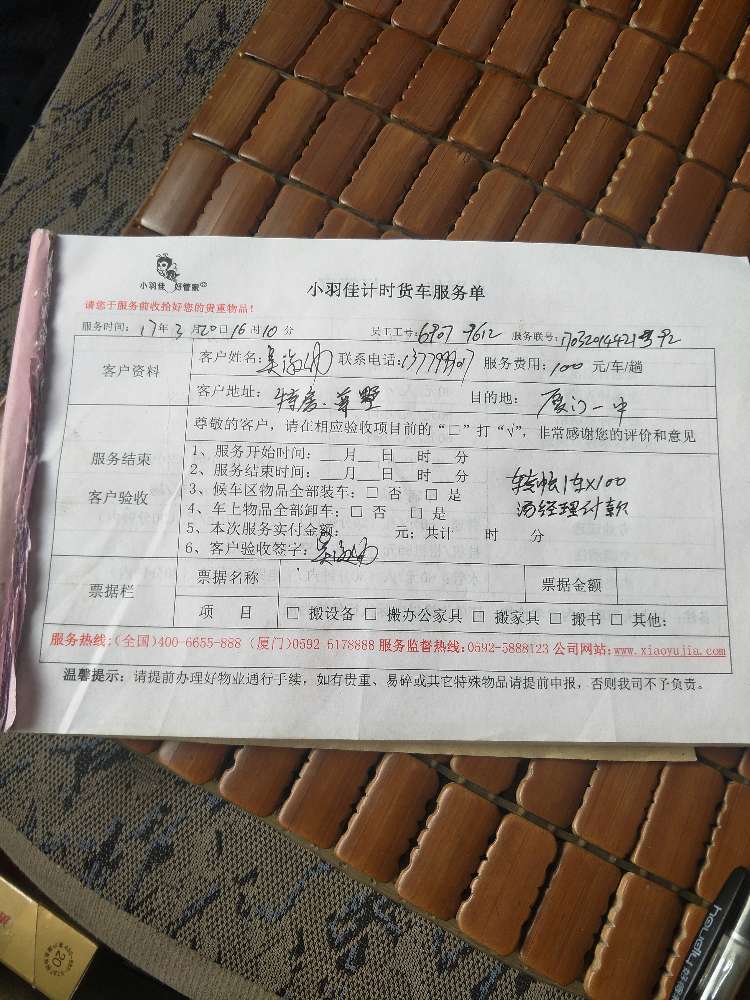 小羽佳 好管家
小羽佳计时货车服务单
请您于服务前收拾好您的贵重物品！
服务时间：17年3月20日16时10分 员工工号：6907 9612 服务联号：
客户资料 客户姓名：吴 联系电话： 服务费用：100 元/车/趟
客户地址：特房·尊墅 目的地：厦门一中
服务结束
客户验收
尊敬的客户，请在相应验收项目前的“□”打“√”，非常感谢您的评价和意见
1、服务开始时间：__月__日__时__分
2、服务结束时间：__月__日__时__分
3、候车区物品全部装车：□ 否 □ 是
4、车上物品全部卸车：□ 否 □ 是
5、本次服务实付金额： 元；共计 时 分
6、客户验收签字：吴
转帐1车X100
汤经理付款
票据栏 票据名称 票据金额
项 目 □ 搬设备 □ 搬办公家具 □ 搬家具 □ 搬书 □ 其他：
服务热线：(全国)400-6655-888 (厦门)0592 6178888 服务监督热线：0592-5888123 公司网站：www.xiaoyujia.com
温馨提示：请提前办理好物业通行手续，如有贵重、易碎或其它特殊物品请提前申报，否则我司不予负责。
20